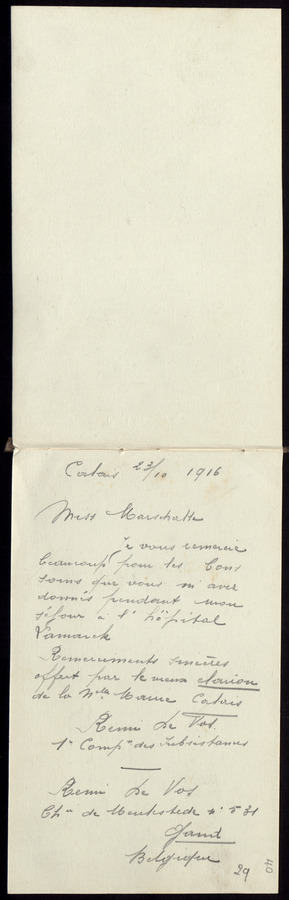 Calais 23/10 1916
Miss Marschalle
Je vous remercie
beaucoup pour les bons
soins que vous m'avez
donnés pendant mon
séjour à l'hôpital
Lamarck
Remerciments sincères
offert par le vieux clarion
de la Calais
Remi De Vos
1e Compie des Subsistances
Remi De Vos
Chée de Meulestede n° 531
Gand
Belgique
29
40